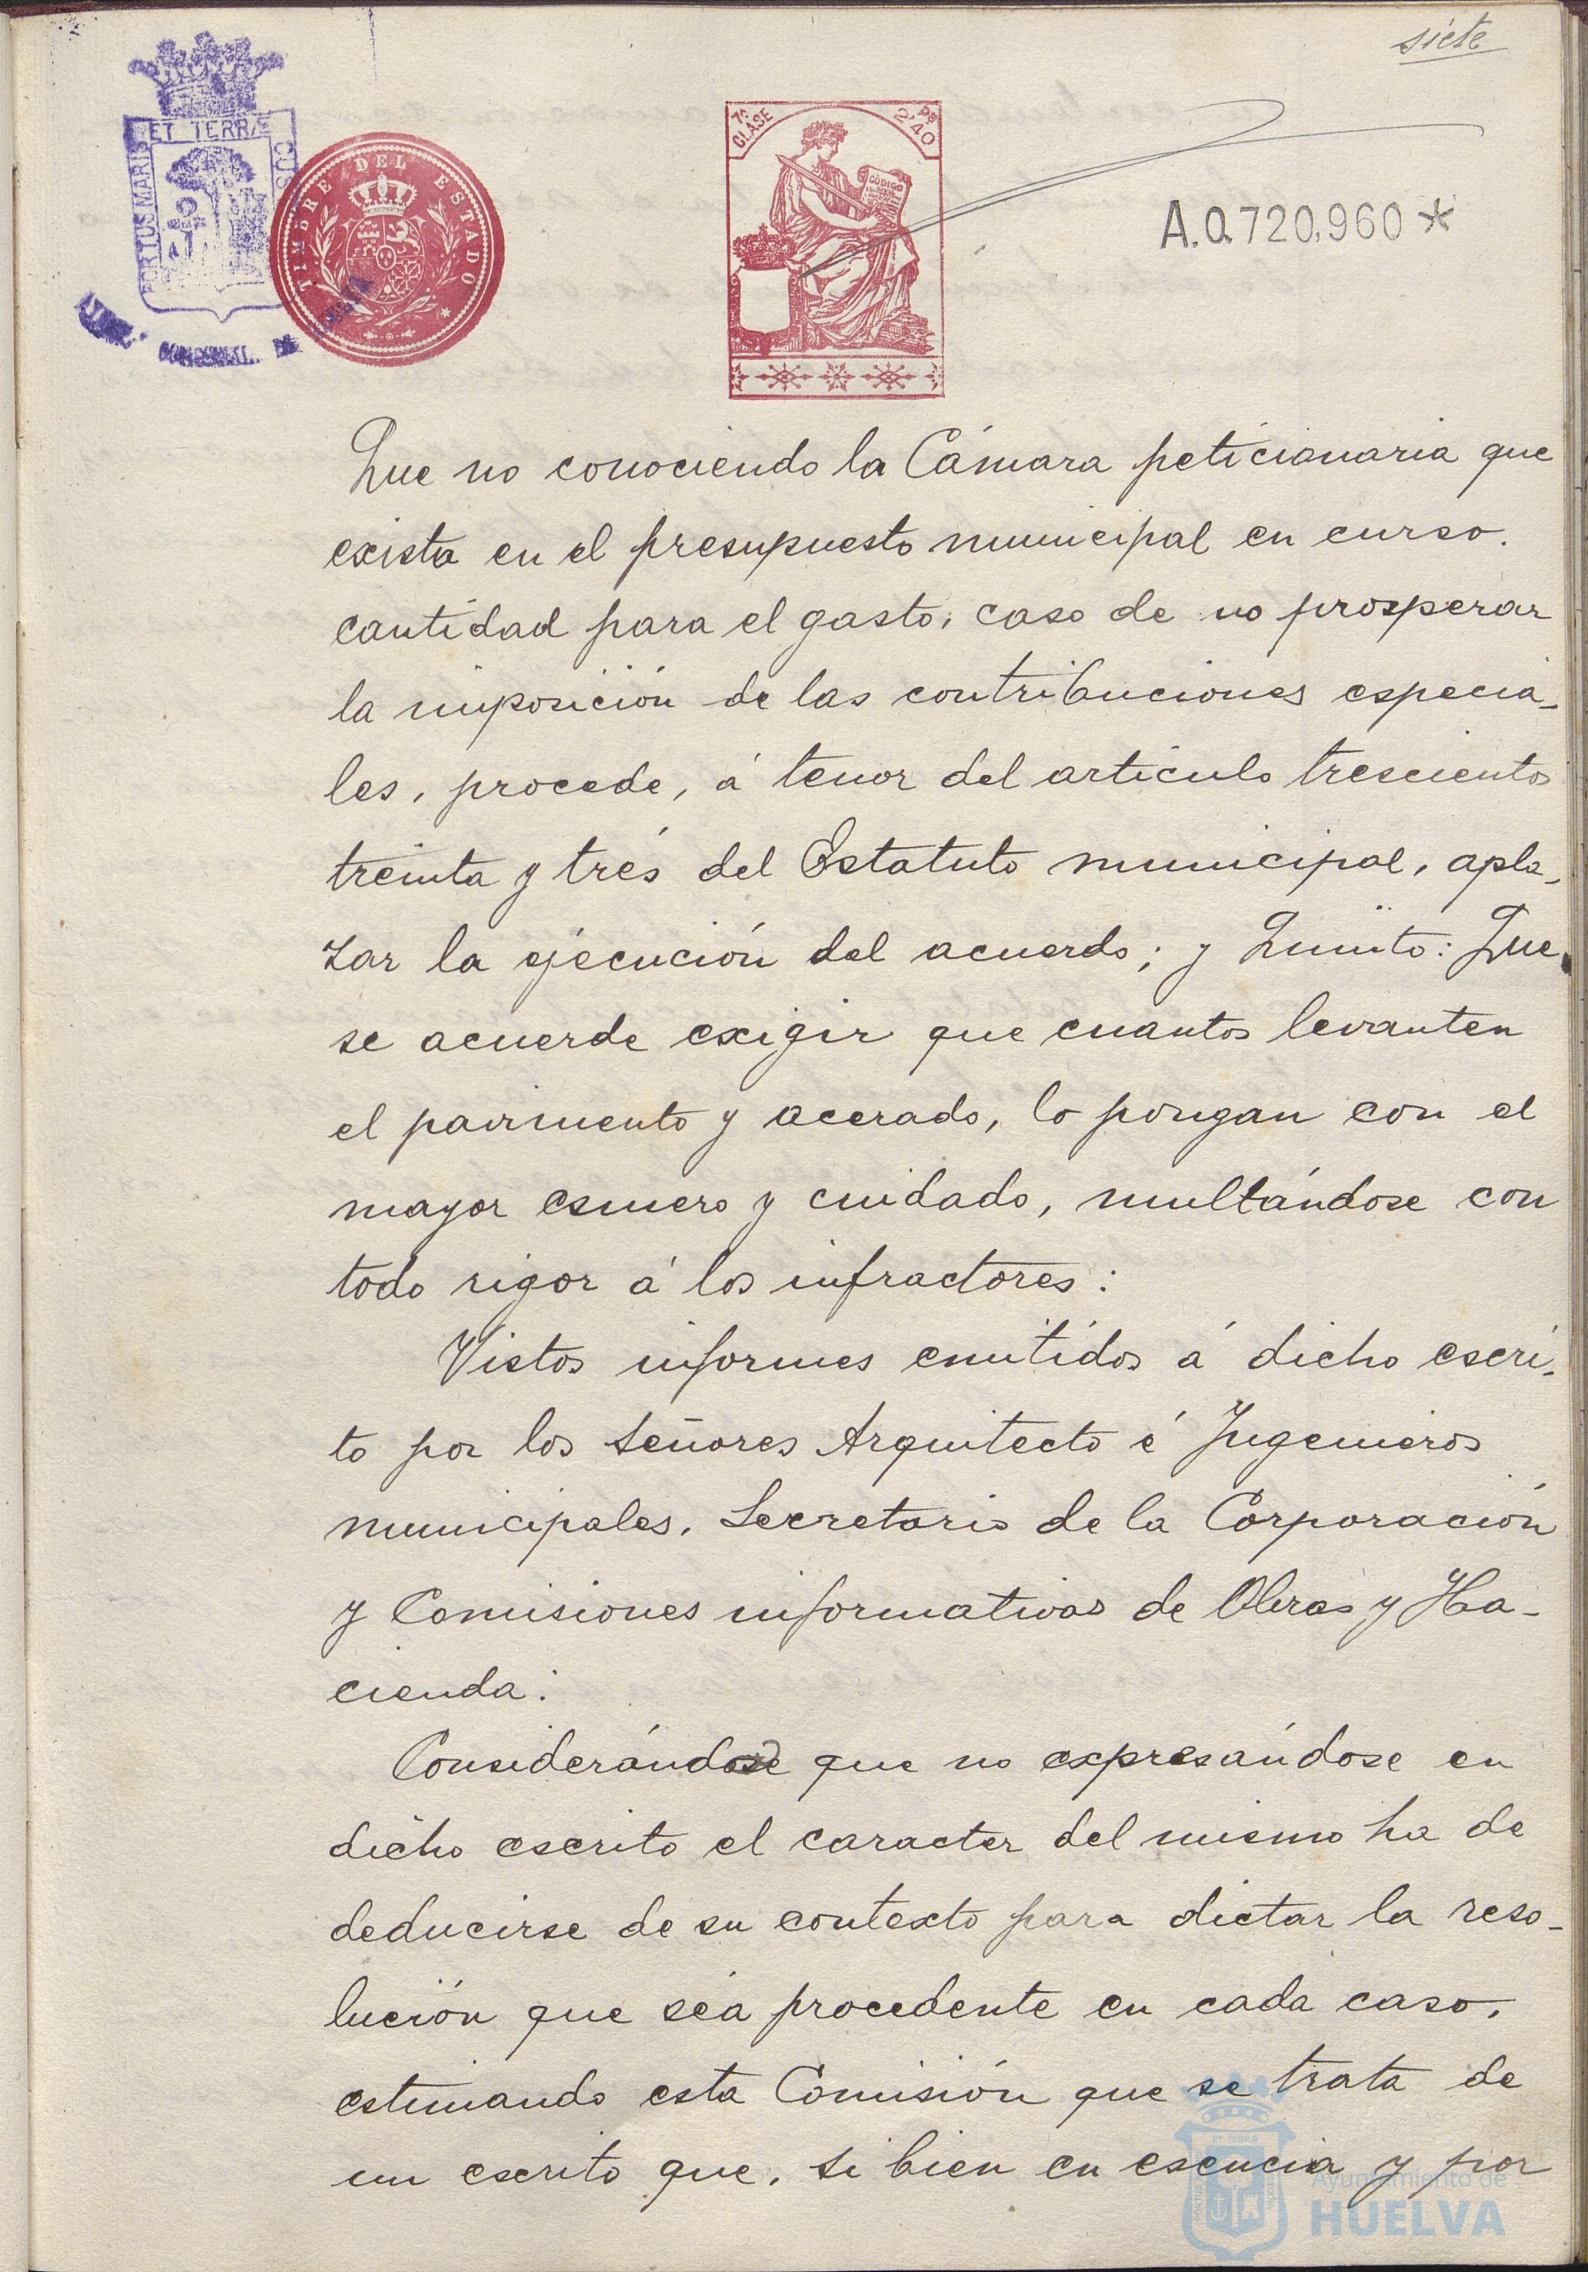 siete
ET TERRÆ
PORTUS MARIS
CUS
TIMBRE DEL ESTADO
7ª CLASE
Ps 2'40
CÓDIGO
A.0.720,960 *
Que no conociendo la Cámara peticionaria que
exista en el presupuesto municipal en curso.
cantidad para el gasto, caso de no prosperar
la imposición de las contribuciones especia-
les, procede, á tenor del artículo trescientos
treinta y trés del Estatuto municipal, apla-
zar la ejecución del acuerdo; y Quinto: Que
se acuerde exigir que cuantos levanten
el pavimento y acerado, lo pongan con el
mayor esmero y cuidado, multándose con
todo rigor á los infractores:
Vistos informes emitidos á dicho escri-
to por los señores Arquitecto é Ingenieros
municipales, Secretario de la Corporación
y Comisiones informativas de Obras y Ha-
cienda:
Considerándose que no expresándose en
dicho escrito el caracter del mismo ha de
deducirse de su contexto para dictar la reso-
lución que séa procedente en cada caso,
estimando esta Comisión que se trata de
un escrito que, si bien en esencia y por
Ayuntamiento de
HUELVA